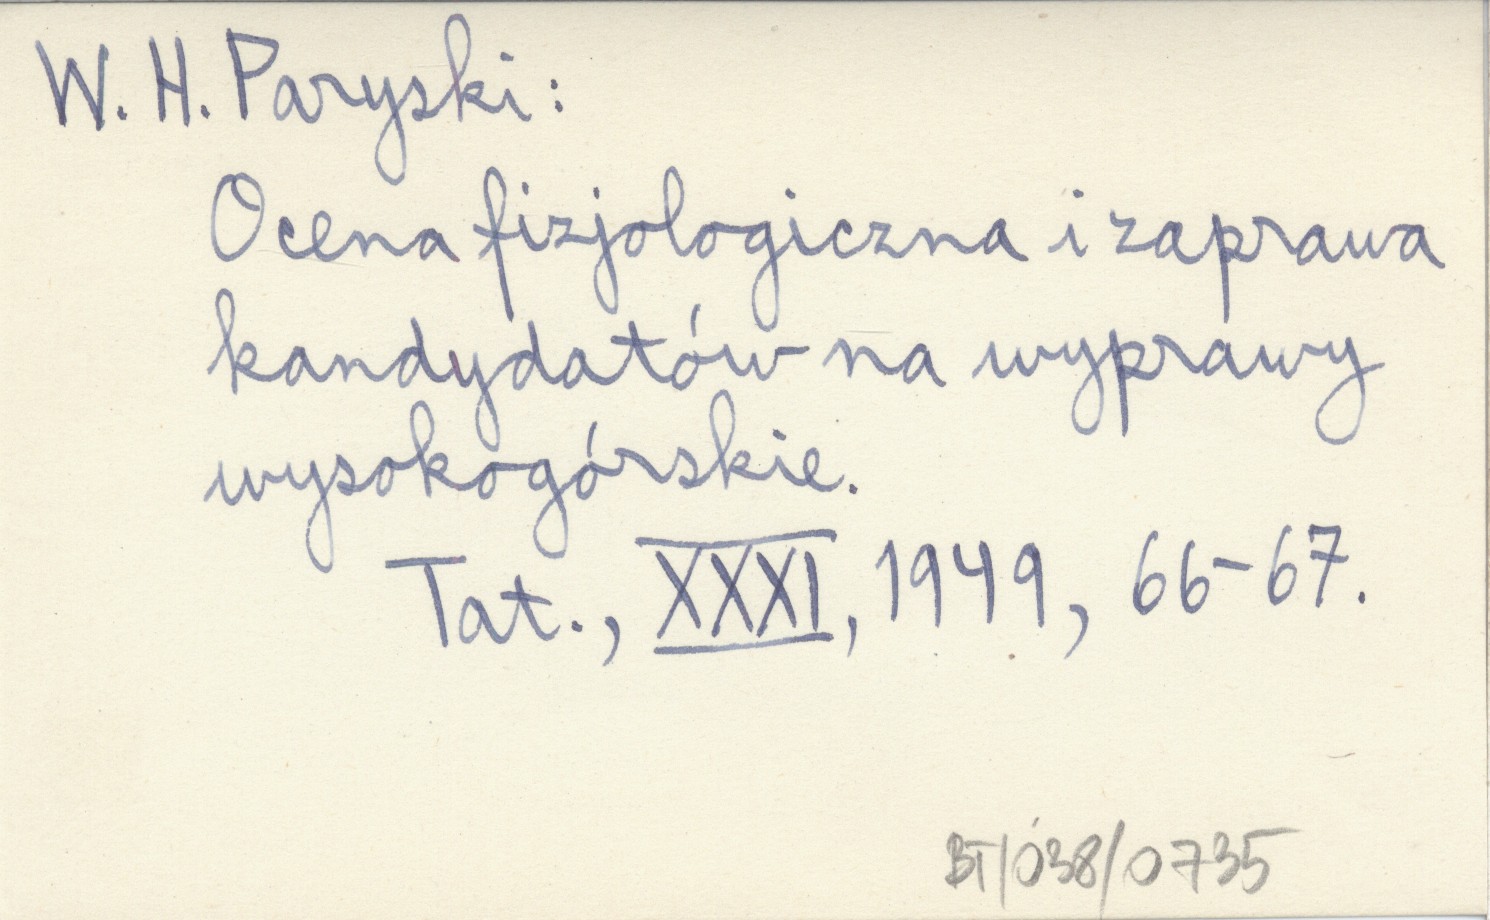 W. H. Paryski:
Ocena fizjologiczna i zaprawa
kandydatów na wyprawy
wysokogórskie.
Tat., XXXI, 1949, 66-67.
BT/038/0735